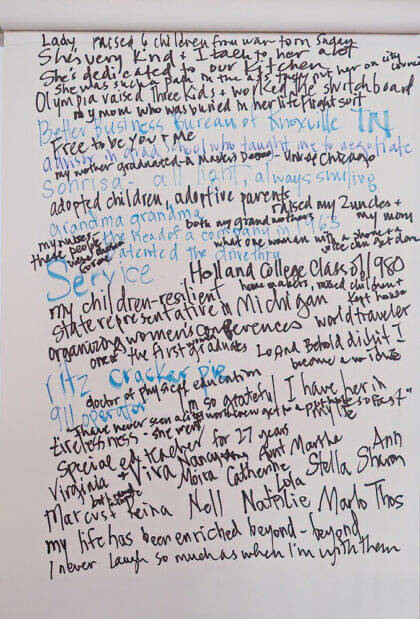 Lady, raised 6 children from war torn Sudan
She's very kind + I talk to her a lot
She's dedicated to our kitchen
She was such a pain in the ass, they put her on city council
Olympia raised three kids + worked the switchboard
my mom who was buried in her life flight suit
Better Business Bureau of Knoxville TN
Free to be You + me
advisor in grad school who taught me to negotiate
my mother graduated - a Masters Degree - Univ of Chicago
Sohrisa - all light, always smiling
adopted children, adoptive parents
raised my 2 uncles +
grandma grandma
both my grandmothers + my mom
my nurses -
the head of a company in 1963
these people were
what one woman with a phone + a voice can get done
patented the drive thru
Service
Holland College Class of 1980
my children - resilient
home makers, raised children + kept house
State representative in Michigan
organizing women's conferences
world traveler
one of the first graduates
Lo And Behold did it I
become a midwife
ritz cracker pie
doctor of physical education
911 operator
I'm so grateful I have her in my life
I have never seen a
tirelessness - she went
Special ed teacher for 27 years
Virginia + Viva Nana Aunt Marsha Ann
Moira Catherine Lola Stella Sharon
Marcus + Reina Nell Natalie Marlo Thos
my life has been enriched beyond - beyond
I never laugh so much as when I'm with them